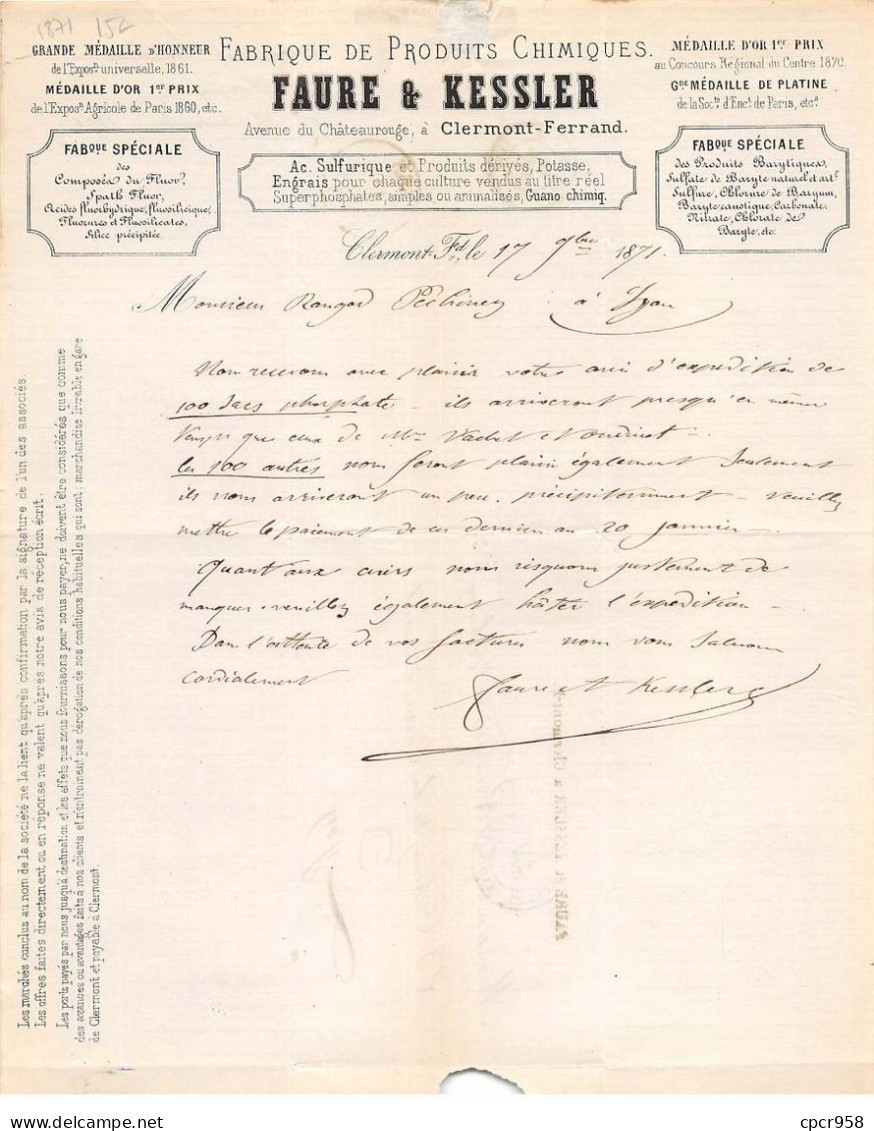 1871 15c
GRANDE MÉDAILLE D'HONNEUR
de l'Expos^on universelle, 1861.
MÉDAILLE D'OR 1^er PRIX
de l'Expos^on Agricole de Paris 1860, etc.
FABRIQUE DE PRODUITS CHIMIQUES.
FAURE & KESSLER
Avenue du Châteaurouge, à Clermont-Ferrand.
MÉDAILLE D'OR 1^er PRIX
au Concours Régional du Centre 1870.
G^de MÉDAILLE DE PLATINE
de la Soc^té d'Enc^t de Paris, etc^a
FAB^QUE SPÉCIALE
des
Composés du Fluor,
Spath Fluor,
Acides fluorhydrique, fluosilicique,
Fluorures et Fluosilicates,
Silice précipitée
Ac. Sulfurique et Produits dérivés, Potasse,
Engrais pour chaque culture vendus au titre réel
Superphosphates, simples ou animalisés, Guano chimiq.
FAB^QUE SPÉCIALE
des Produits Barytiques,
Sulfate de Baryte naturel et art^l
Sulfure, Chlorure de Baryum,
Baryte caustique, Carbonate,
Nitrate, Chlorate de
Baryte, etc.
Clermont-F^d, le 17 9bre 1871.
Monsieur Pechiney à Lyon
Nous recevons avec plaisir votre avis d'expédition de
100 sacs phosphate - ils arriveront presqu'en même
temps que ceux de M^rs Vachet
les 100 autres nous feront plaisir également seulement
ils nous arriveront un peu précipitamment - veuillez
mettre le paiement de ces derniers au 20 janvier -
Quant aux nous risquons justement de
manquer - veuillez également hâter l'expédition -
Dans l'attente de vos factures nous vous saluons
cordialement
Faure et Kessler
Les marchés conclus au nom de la société ne la lient qu'après confirmation par la signature de l'un des associés.
Les offres faites directement ou en réponse ne valent qu'après notre avis de réception écrit.
Les ports payés par nous jusqu'à destination et les effets que nous fournissons pour nous payer, ne doivent être considérés que comme
des avances ou avantages faits à nos clients et n'entraînent pas dérogation de nos conditions habituelles qui sont: marchandise livrable en gare
de Clermont et payable à Clermont.
FAURE & KESSLER à Clermont
cpcr958